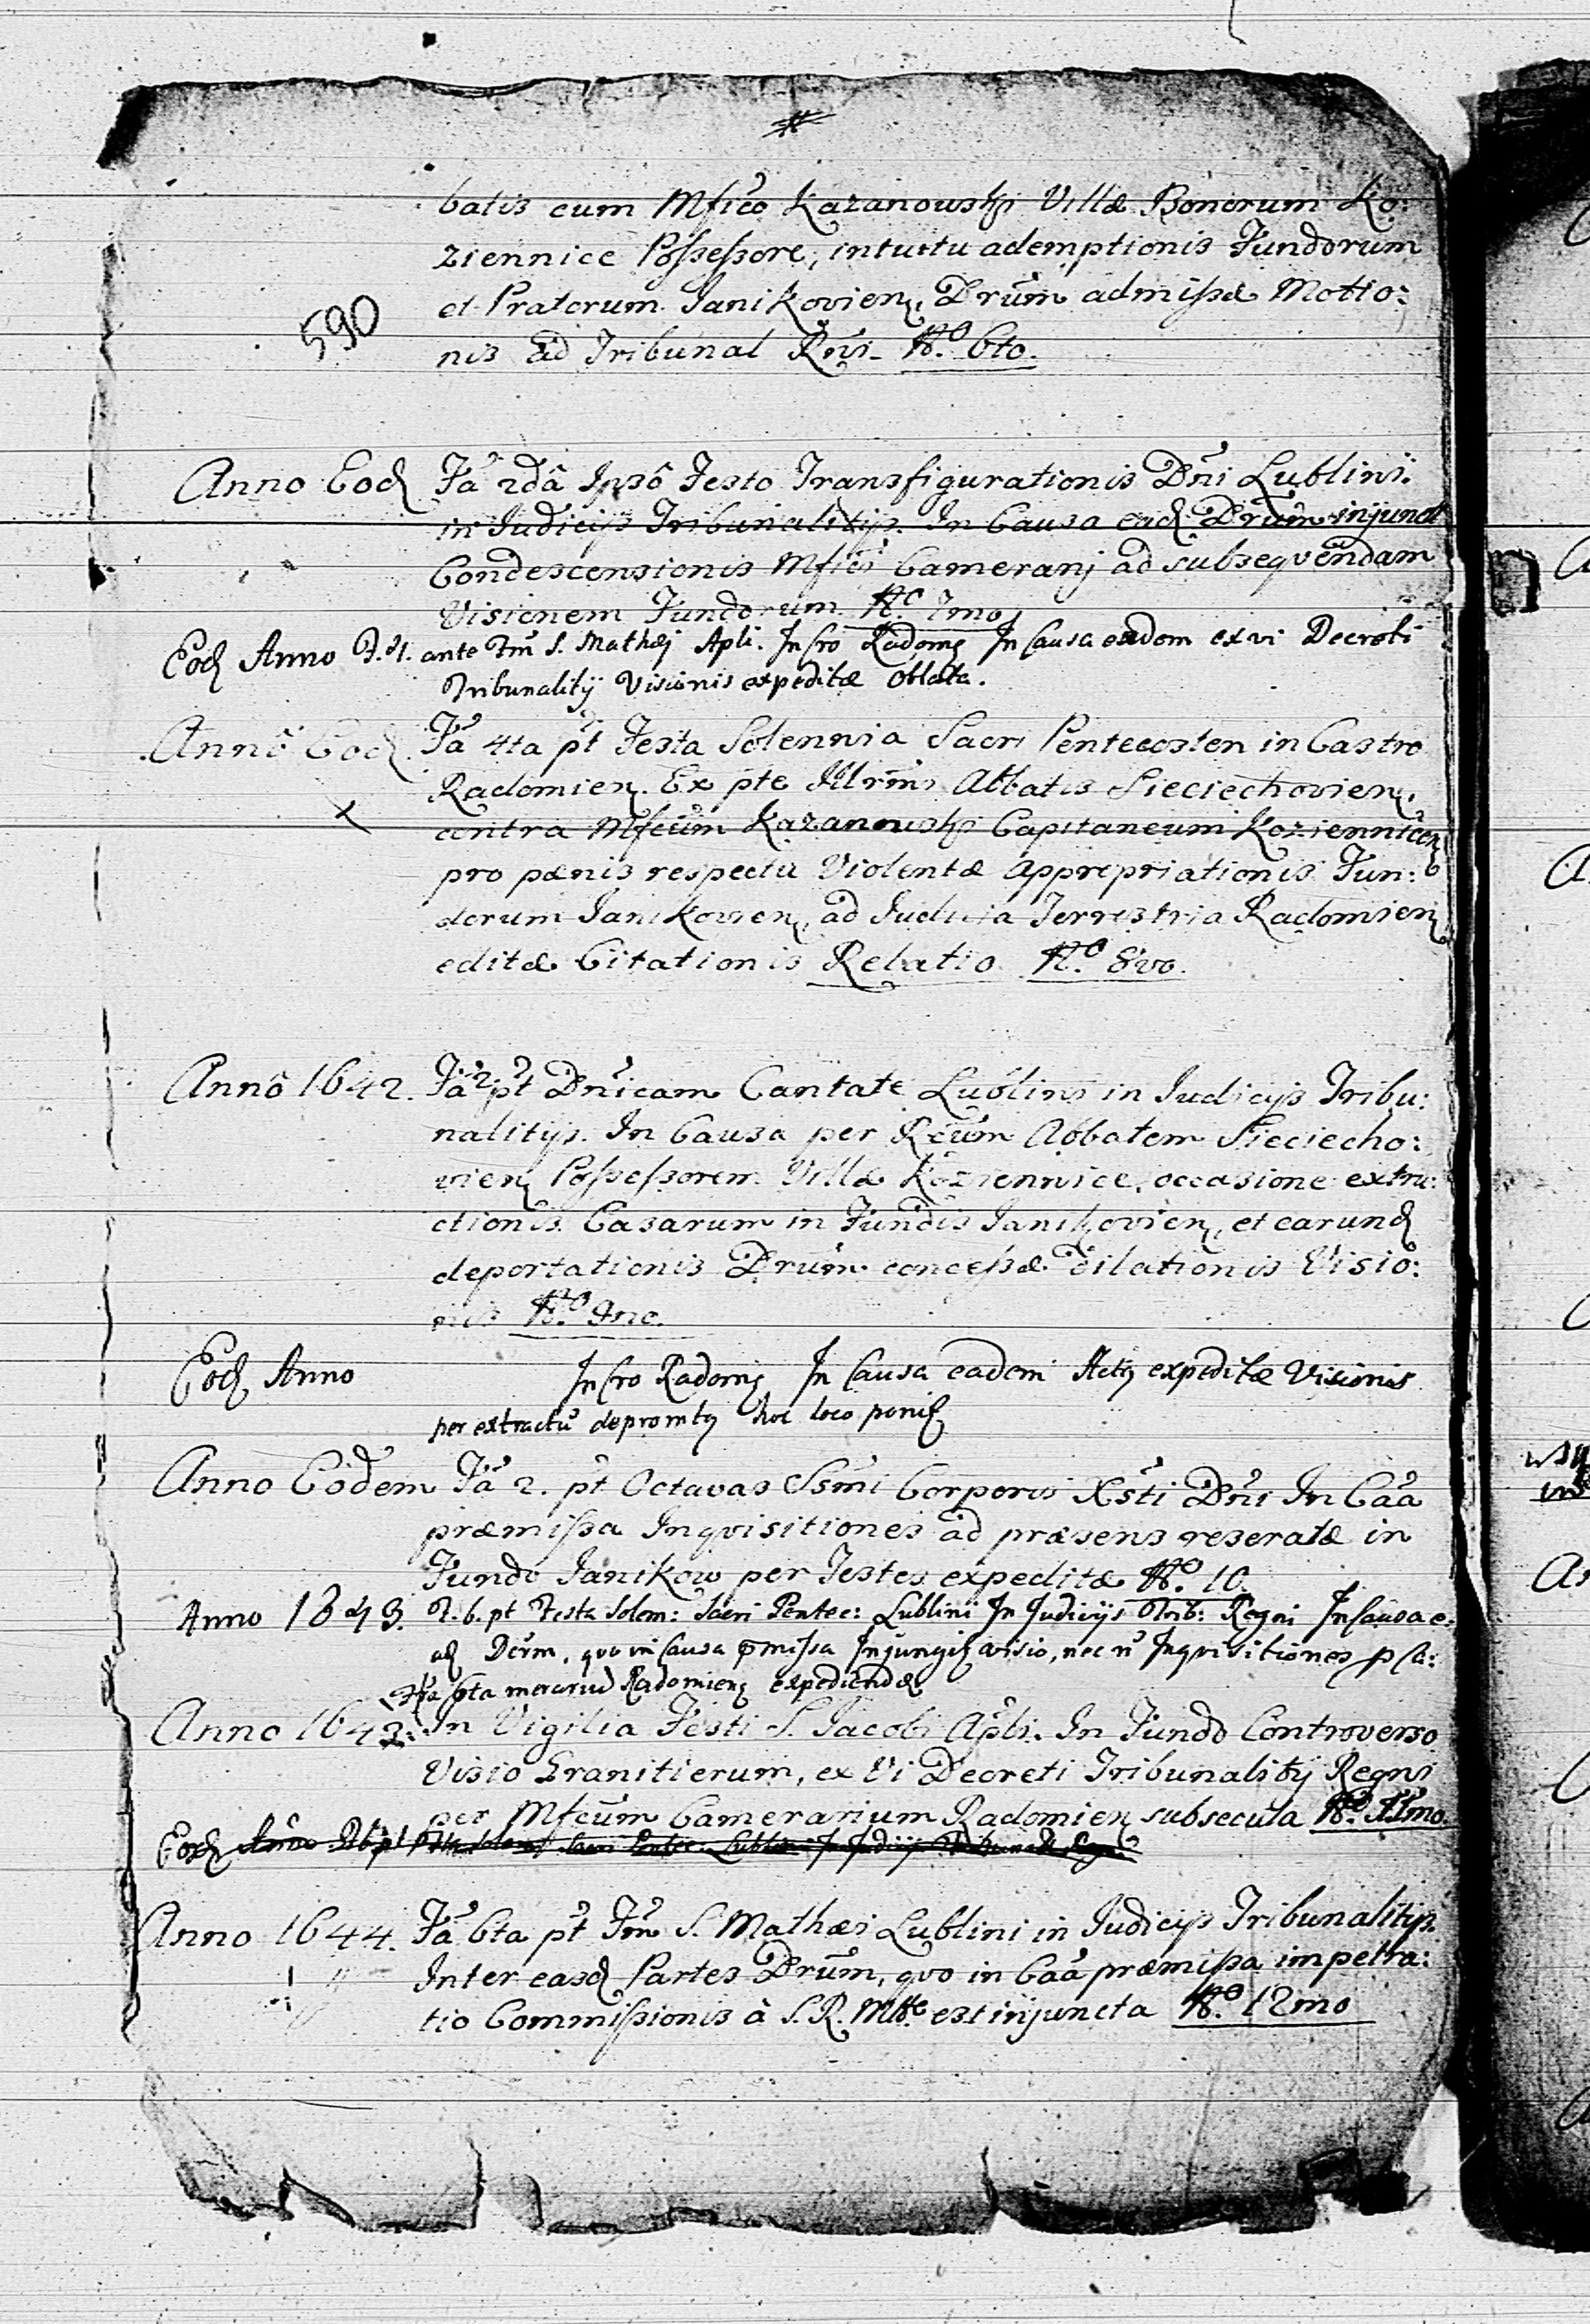 batis cum Mfico Kazanowski Villæ Bonorum Ko:
ziennice Possessore, intuitu ademptionis Fundorum
et Pratorum Janikovien. Drum admissæ Motio:
590
nis ad Tribunal Rni. No. 6to.
Anno Eod Fa 2da Ipso Festo Transfigurationis Dni Lublini
in Judicijs Tribunalitijs. In Causa ead Drum injunct
Condescensionis Mfici Cameranj ad subseqvendam
Visionem Fundorum No. 7mo
Eod Anno F. 4. ante Fm S. Mathæj Apli. In Cro Radom In Causa eadem ex vi Decreti
Tribunalitij Visionis expeditæ Oblata.
Anno Eod. Fa 4ta pt Festa Solennia Sacri Pentecosten in Castro
Radomien. Ex pte Illrmi Abbatis Sieciechovien.
contra Mfcum Kazanowski Capitaneum Koziennicen
pro pænis respectu Violentæ Appropriationis Fun:
dorum Janikovien, ad Judicia Terrestria Radomien
editæ Citationis Relatio No. 8vo.
Anno 1642. Fa 2 pt Dnicam Cantate Lublini in Judicijs Tribu:
nalitijs. In Causa per Rcum Abbatem Sieciecho:
vien Possessorem Villæ Koziennice, occasione extru:
ctionis Casarum in Fundis Janikovien, et earund
deportationis Drum concessæ dilationis Visio:
nis No. 9no.
Eod Anno In Cro Radom In Causa eadem Act9 expeditæ Visionis
per extractu depromt9 hoc loco ponit
Anno Eodem Fa 2. pt Octavas Ssmi Corporis Xsti Dni In Caa
præmissa Inqvisitiones ad præsens reseratæ in
Fundo Janikow per Testes expeditæ No. 10.
Anno 1643. F. 6. pt Festa Solem: Sacri Pentec: Lublini In Judicijs Trib: Regni In Causa e:
ad Dcrm, qvo in Causa pmissa Injungit visio, nec n Inqvisitiones p Ca:
Radomien expediendæ
Anno 1643. In Vigilia Festi S. Jacobi Apli. In Fundo Controverso
Visio Granitierum, ex Vi Decreti Tribunalitij Regni
per Mfcum Camerarium Radomien subsecuta No. 11mo.
Eod Anno
Anno 1644. Fa 6ta pt Fm S. Mathæi Lublini in Judicijs Tribunalitijs.
Inter easd Partes Drum, qvo in Caa præmissa impetra:
tio Commissionis à S. R. Mtte est injuncta No. 12mo